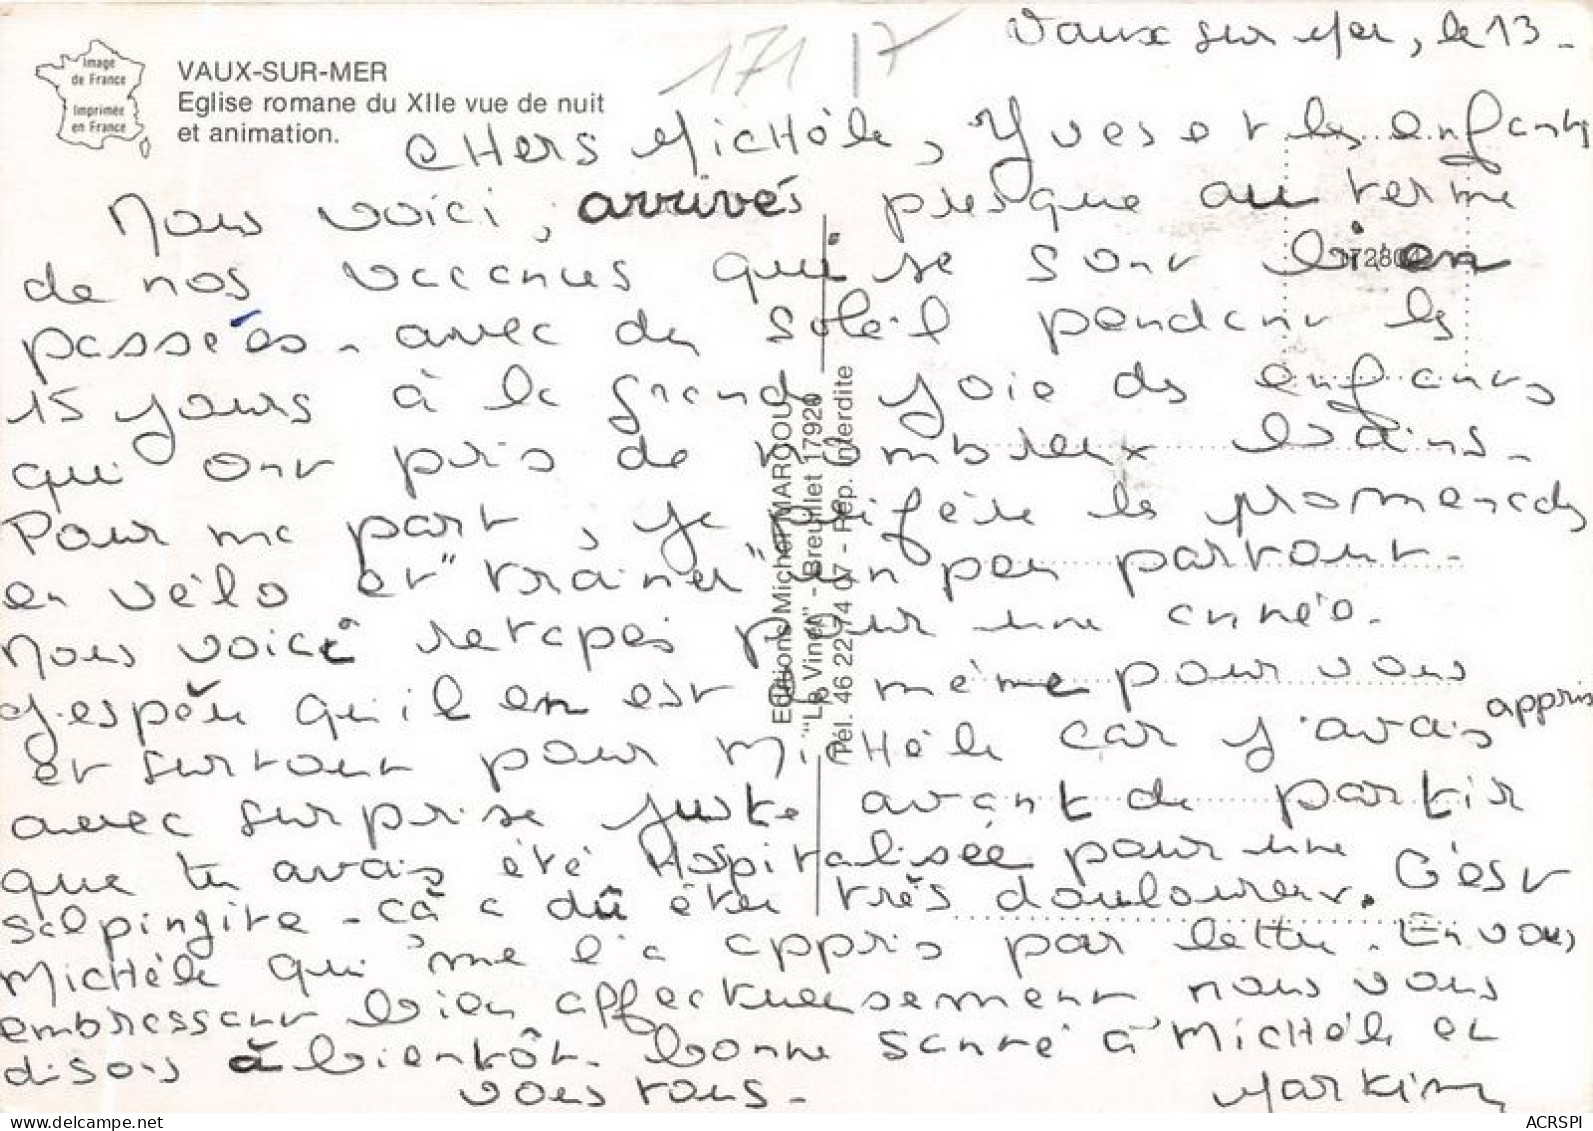 171 17
Vaux sur Mer, le 13 -
Image
de France
Imprimée
en France
VAUX-SUR-MER
Eglise romane du XIIe vue de nuit
et animation.
CHers MicHèle, Yves et les enfants
Nous voici, arrivés presque au terme
de nos vacances qui se sont bien
passées - avec du soleil pendant les
15 jours à la grande joie des enfants
qui ont pris de nombreux bains -
Pour ma part, je préfère les promenades
en vélo et "traîner" un peu partout -
Nous voici retapés pour une année.
J'espère qu'il en est de même pour vous
et surtout pour MicHèle car j'avais appris
avec surprise juste avant de partir
que tu avais été Hospitalisée pour une
salpingite - ça a dû être très douloureux. C'est
MicHèle qui me l'a appris par lettre. En vous
embrassant bien affectueusement nous vous
disons à bientôt. bonne santé à MicHèle et
vous tous -
Martine
Editions Michel MARCOU
"La Vinet" - Breuillet 17920
Tél. 46 22 74 07 - Rep. Interdite
172804
ACRSPI